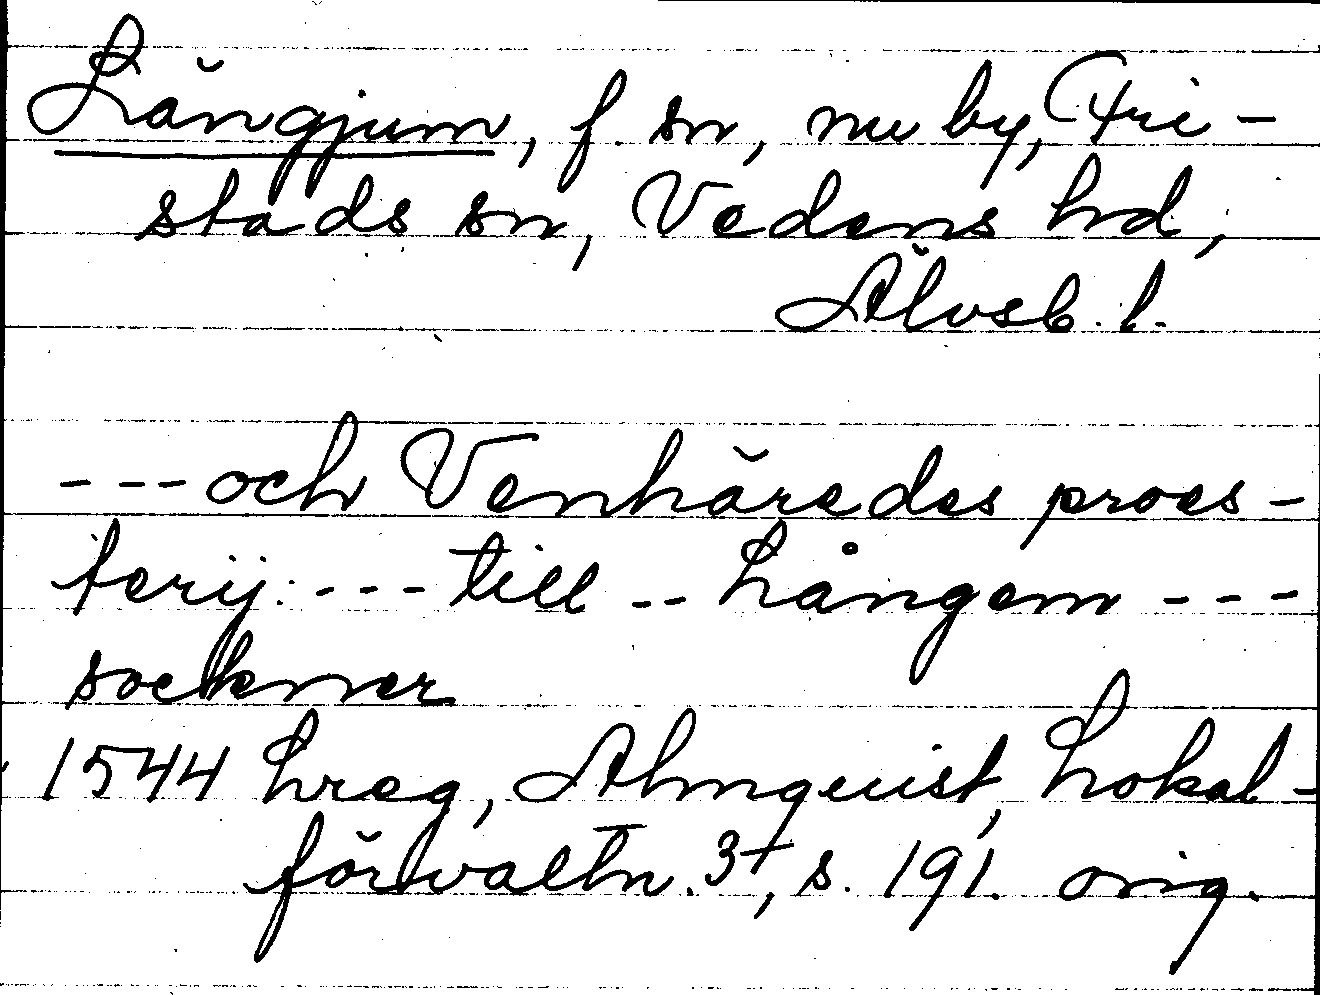 Längjum, f. sn, nu by, Fri-
stads sn, Vedens hd,
Älvsb. l.
---och Venhäredes proes-
terij: --- till -- Långem ---
sockner
1544 hreg, Almquist, Lokal-
förvaltn. 3+, s. 191. orig.